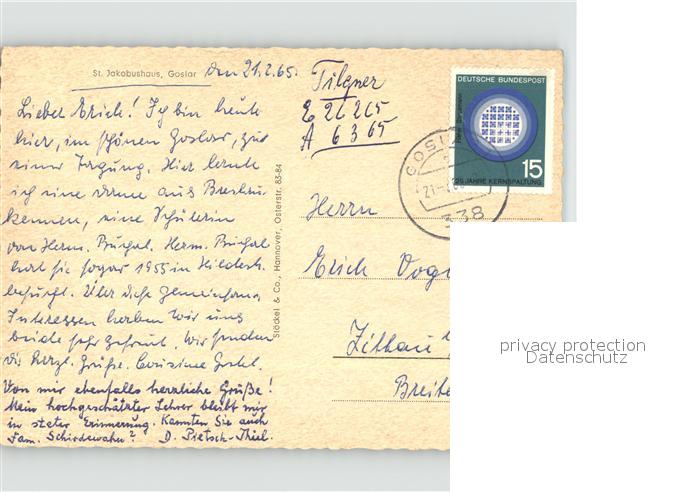 St. Jakobushaus, Goslar den 21.2.65.
Lieber Erich! Ich bin heute
hier, im schönen Goslar, zu
einer Tagung. Hier lernte
ich eine Dame aus Breslau
kennen, eine Schülerin
von Herm. Burgel. Herm. Burgel
hat sie sogar 1955 in Hildesh.
besucht. Über diese gemeinsamen
Interessen haben wir uns
beide sehr gefreut. Wir senden
Dir herzl. Grüße. Cousine
Von mir ebenfalls herzliche Grüße!
Mein hochgeschätzter Lehrer bleibt mir
in steter Erinnerung. Kannten Sie auch
Fam. Schirdewahn? D. Pietsch-Thiel.
Stöckel & Co., Hannover, Osterstr. 83-84
Tilgner
E 26 2 65
A 6 3 65
DEUTSCHE BUNDESPOST
15
25 JAHRE KERNSPALTUNG
GOSL
21.-2.
338
Herrn
Erich Vog
Zittau
Breite
privacy protection
Datenschutz